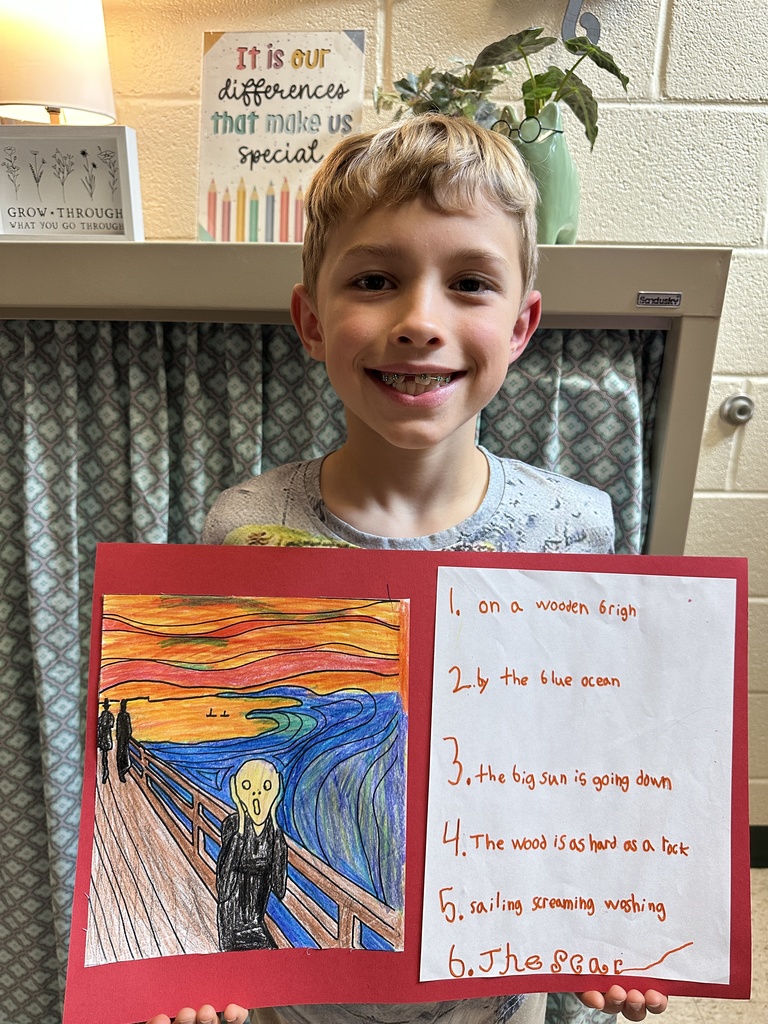 It is our
differences
that make us
special
GROW • THROUGH
WHAT YOU GO THROUGH
Sandusky
1. on a wooden brigh
2. by the blue ocean
3. the big sun is going down
4. The wood is as hard as a rock
5. sailing screaming washing
6. The scar